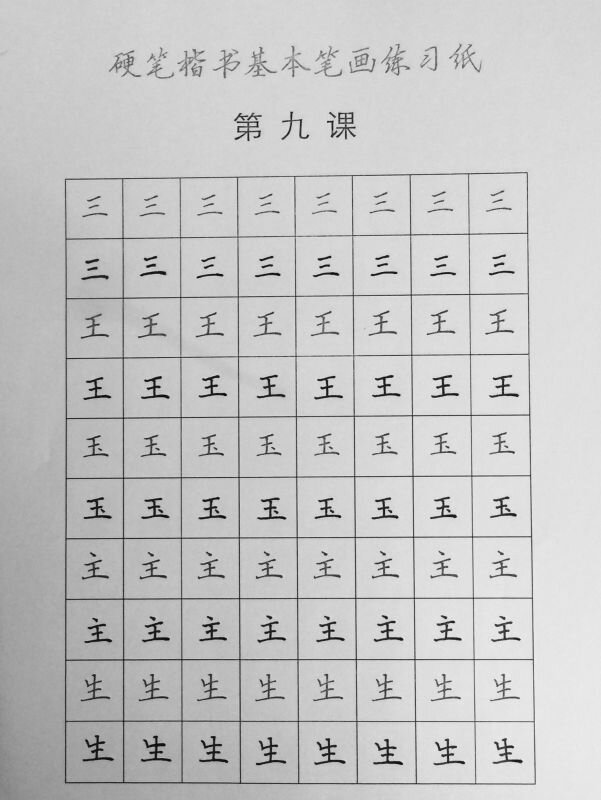 硬笔楷书基本笔画练习纸
第九课
三三三三三三三三
三三三三三三三三
王王王王王王王王
王王王王王王王王
玉玉玉玉玉玉玉玉
玉玉玉玉玉玉玉玉
主主主主主主主主
主主主主主主主主
生生生生生生生生
生生生生生生生生